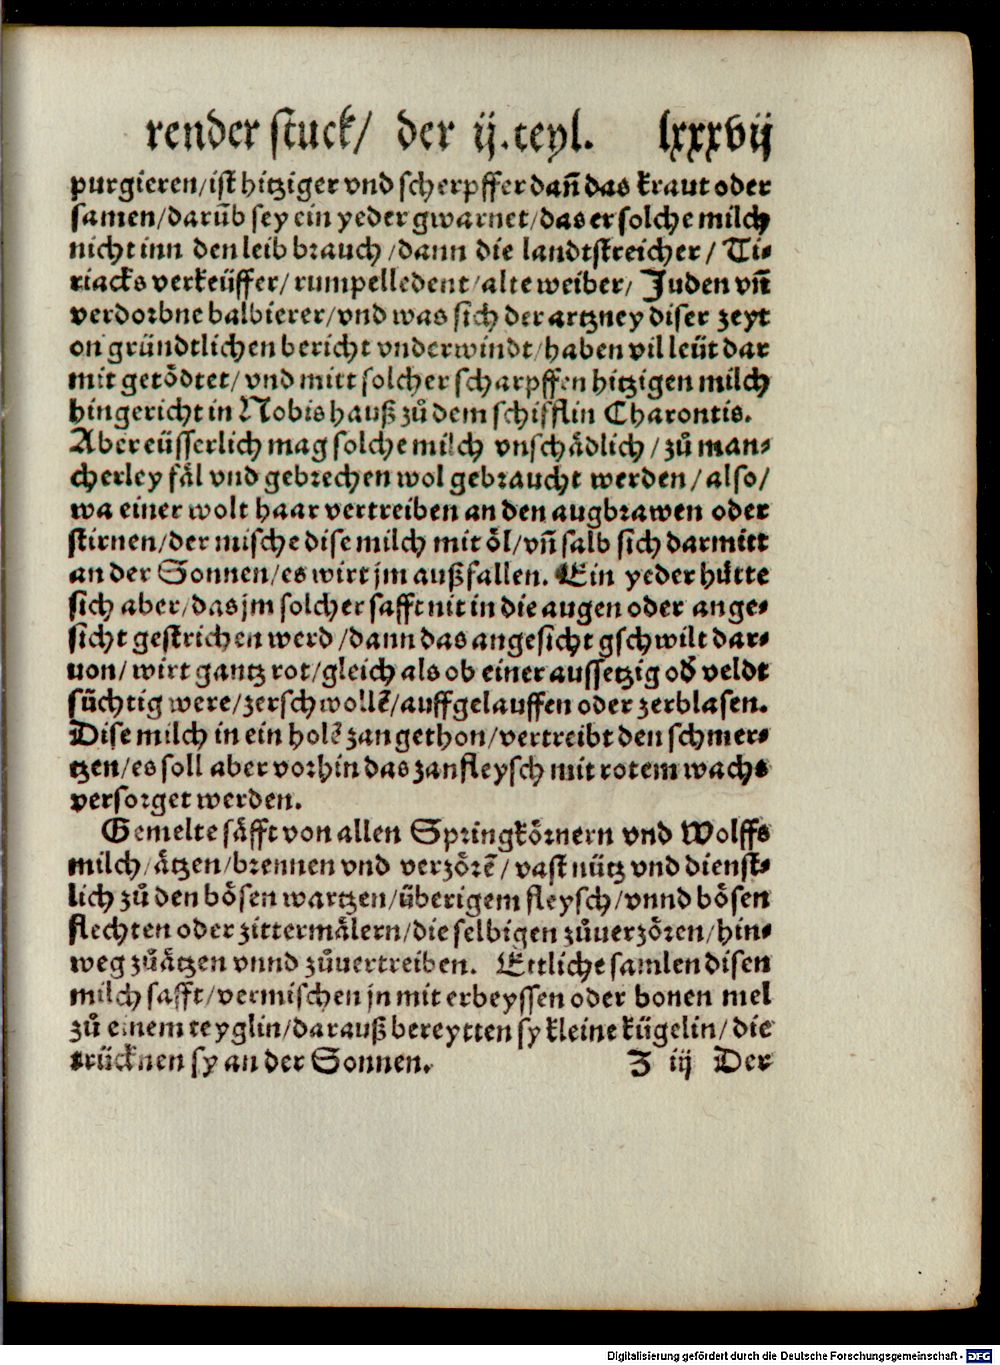 render stuck/ der ij.teyl. lxxxvij
purgieren/ist hitziger vnd scherpffer dañ das kraut oder
samen/darũb sey ein yeder gwarnet/das er solche milch
nicht inn den leib brauch/dann die landtstreicher/ Ti⸗
riacks verkeüffer/ rumpelledent/alte weiber/ Juden vñ
verdorbne balbierer/vnd was sich der artzney diser zeyt
on gründtlichen bericht vnderwindt/haben vil leüt dar
mit getödtet/ vnd mitt solcher scharpffen hitzigen milch
hingericht in Nobis hauß zů dem schifflin Charontis.
Aber eüsserlich mag solche milch vnschädlich/zů man⸗
cherley fäl vnd gebrechen wol gebraucht werden/also/
wa einer wolt haar vertreiben an den augbrawen oder
stirnen/der mische dise milch mit öl/vñ salb sich darmitt
an der Sonnen/es wirt jm außfallen. Ein yeder hütte
sich aber/das jm solcher safft nit in die augen oder ange⸗
sicht gestrichen werd/dann das angesicht gschwilt dar⸗
uon/ wirt gantz rot/gleich als ob einer aussetzig od̕ veldt
süchtig were/zerschwollẽ/auffgelauffen oder zerblasen.
Dise milch in ein holẽ zan gethon/vertreibt den schmer⸗
tzen/es soll aber vorhin das zanfleysch mit rotem wachs
versorget werden.
Gemelte säfft von allen Springkörnern vnd Wolffs
milch/ätzen/brennen vnd verzörẽ/vast nütz vnd dienst⸗
lich zů den bösen wartzen/überigem fleysch/vnnd bösen
flechten oder zittermälern/die selbigen zůuerzören/hin⸗
weg zůätzen vnnd zůuertreiben. Ettliche samlen disen
milch safft/vermischen jn mit erbeyssen oder bonen mel
zů einem teyglin/darauß bereytten sy kleine kügelin/die
trücknen sy an der Sonnen. Z iij Der
Digitalisierung gefördert durch die Deutsche Forschungsgemeinschaft - DFG